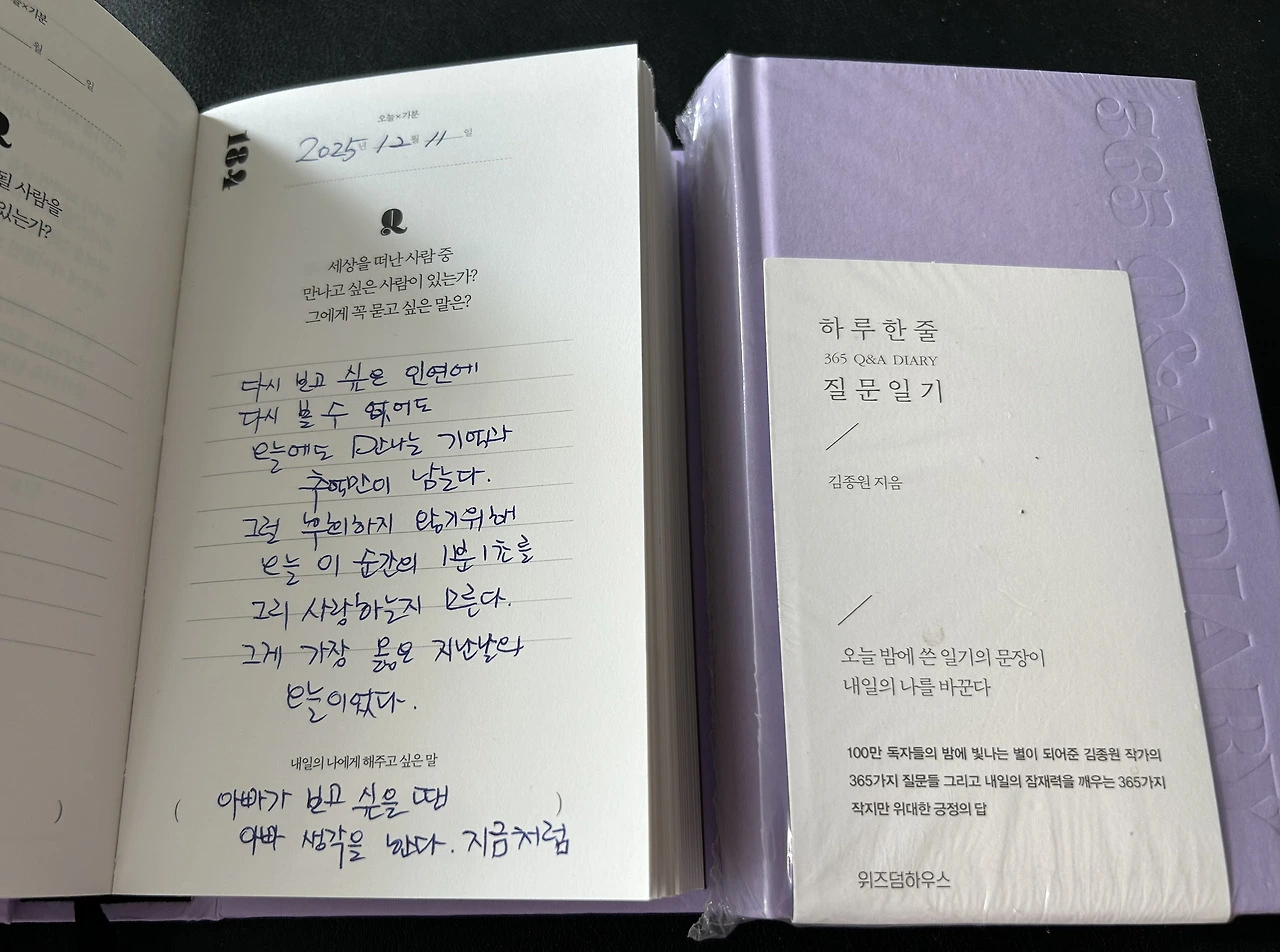 오늘×기분
월 일
Q
될 사람을
있는가?
184
오늘×기분
2025년 12월 11일
Q
세상을 떠난 사람 중
만나고 싶은 사람이 있는가?
그에게 꼭 묻고 싶은 말은?
다시 보고 싶은 인연에
다시 볼 수 없어도
오늘에도 만나는 기억과
추억만이 남는다.
그럴 후회하지 않기위해
오늘 이 순간의 1분 1초를
그리 사랑하는지 모른다.
그게 가장 옳은 지난날의
오늘이었다.
내일의 나에게 해주고 싶은 말
( 아빠가 보고 싶을 땐 )
아빠 생각을 한다. 지금처럼
365 Q&A DIARY
하루 한 줄
365 Q&A DIARY
질문일기
김종원 지음
오늘 밤에 쓴 일기의 문장이
내일의 나를 바꾼다
100만 독자들의 밤에 빛나는 별이 되어준 김종원 작가의
365가지 질문들 그리고 내일의 잠재력을 깨우는 365가지
작지만 위대한 긍정의 답
위즈덤하우스